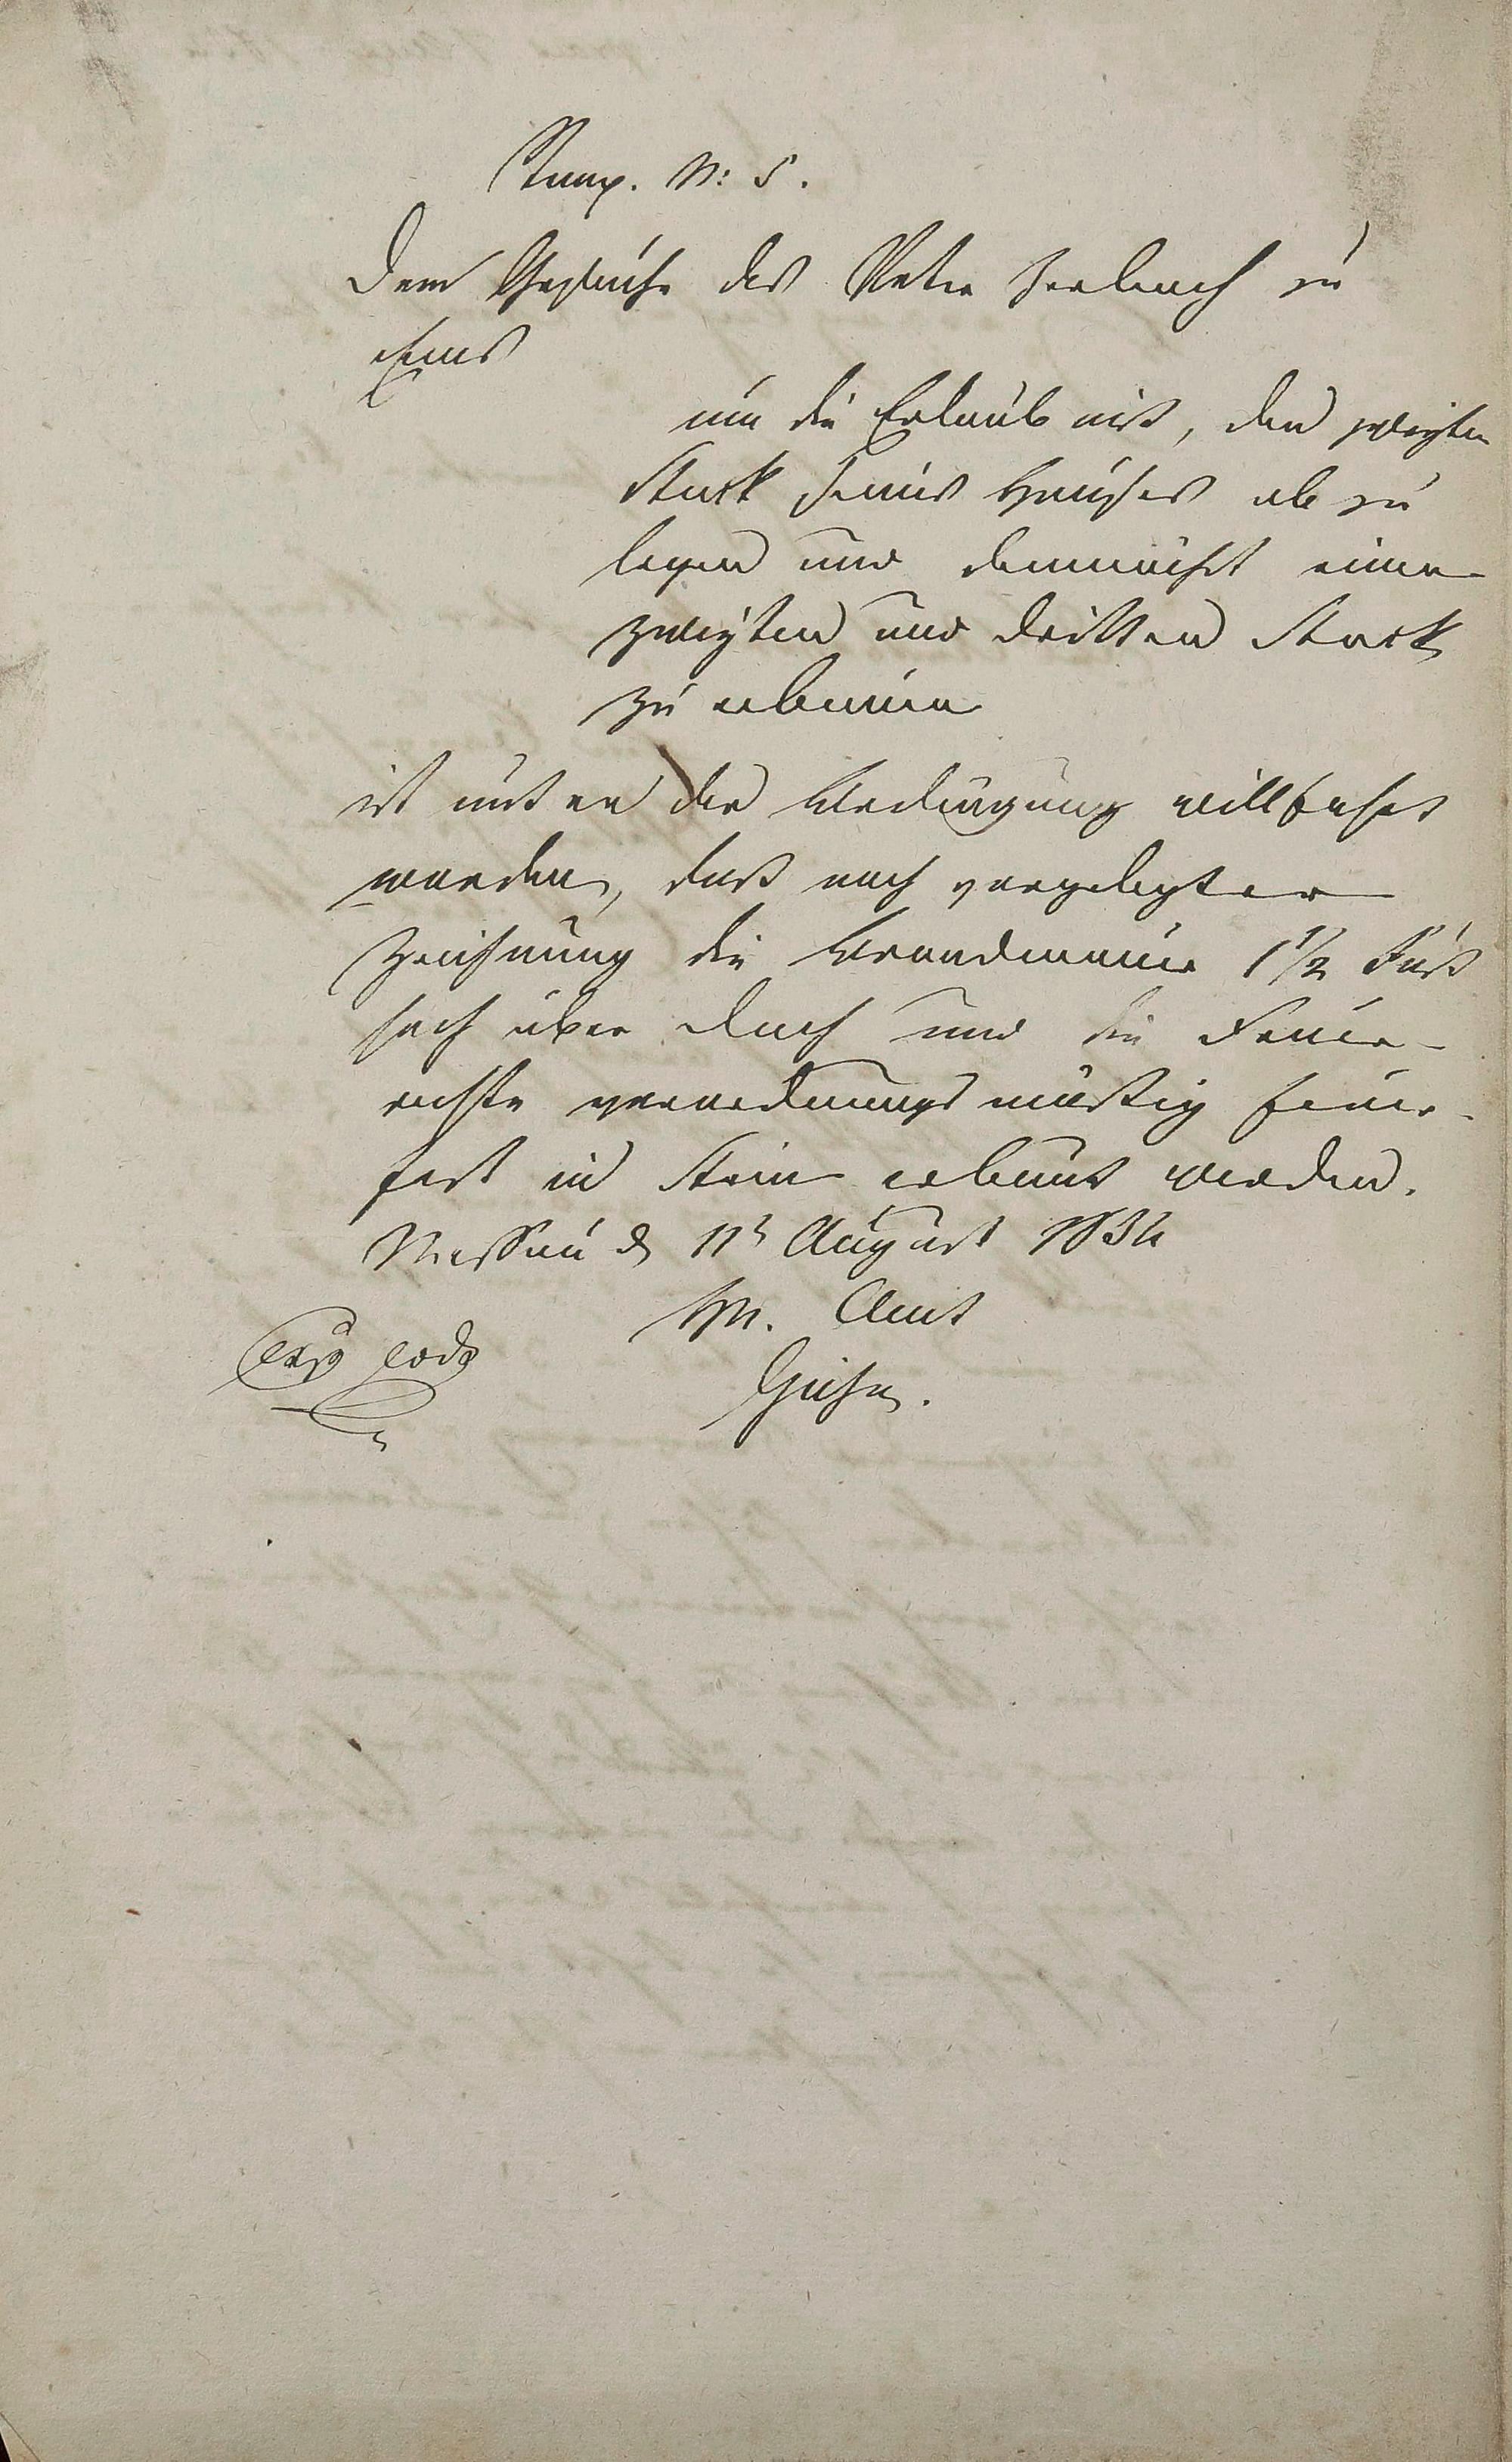 Stemp. N: 5.
Dem Gesuche des Peter Seebach zu
Ems
um die Erlaubniß, den zweyten
Stock seines Hauses ab zu
legen und demnächst einen
zweyten und dritten Stock
zu erbauen
ist unter der Bedingung willfahrt
worden, daß nach vorgelegter
Zeichnung die Brandmauer 1 1/2 Fuß
hoch über Dach und die Feuer-
rechte verordnungsmäßig feuer-
fest in Stein erbaut werden.
Nassau d 11t August 1834
Hn. Amt